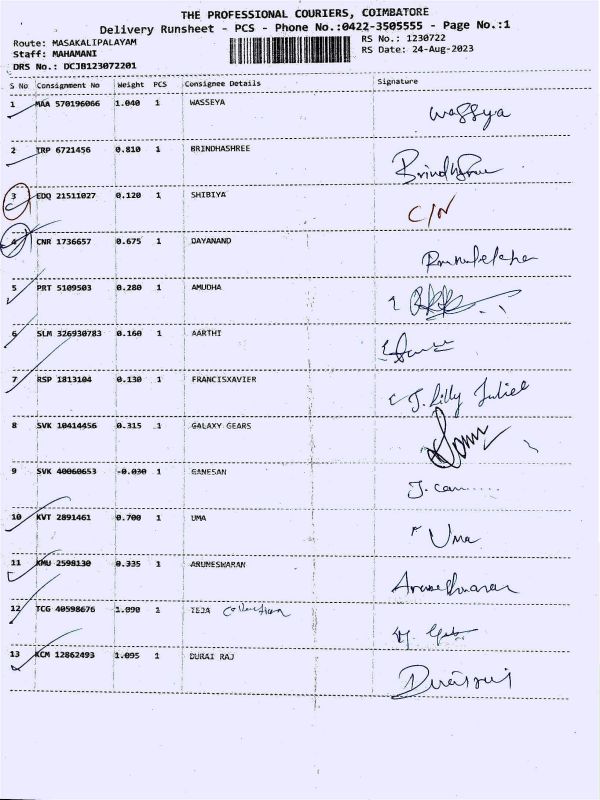 THE PROFESSIONAL COURIERS, COIMBATORE
Delivery Runsheet - PCS - Phone No.:0422-3505555 - Page No.:1
Route: MASAKALIPALAYAM RS No.: 1230722
Staff: MAHAMANI RS Date: 24-Aug-2023
DRS No.: DCJB123072201
S No Consignment No Weight PCS Consignee Details Signature
1 MAA 570196066 1.040 1 WASSEYA wassya
2 TRP 6721456 0.810 1 BRINDHASHREE Brindhashree
3 EDQ 21511027 0.120 1 SHIBIYA C/N
4 CNR 1736657 0.675 1 DAYANAND
5 PRT 5109503 0.280 1 AMUDHA
6 SLM 326930783 0.160 1 AARTHI
7 RSP 1813104 0.130 1 FRANCISXAVIER J. Lilly Juliel
8 SVK 10414456 0.315 1 GALAXY GEARS
9 SVK 40060653 -0.030 1 GANESAN
10 KVT 2891461 0.700 1 UMA Uma
11 KMU 2598130 0.335 1 ARUNESWARAN Aruneshwaran
12 TCG 40598676 1.090 1 TEJA collection
13 KCM 12862493 1.095 1 DURAI RAJ Durairaj